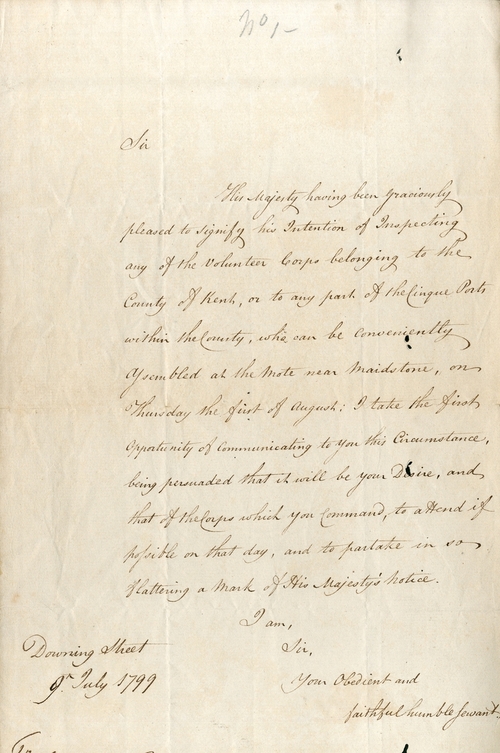 No 1
Sir
His Majesty having been graciously
pleased to signify his Intention of Inspecting
any of the Volunteer Corps belonging to the
County of Kent, or to any part of the Cinque Ports
within the County, who can be conveniently
assembled at the Mote near Maidstone, on
Thursday the first of August; I take the first
Opportunity of communicating to you this Circumstance,
being persuaded that it will be your Desire, and
that of the Corps which you Command, to attend if
possible on that day, and to partake in so
flattering a Mark of His Majesty's Notice.
I am,
Sir,
Your Obedient and
faithful humble Servant
Downing Street
9th July 1799